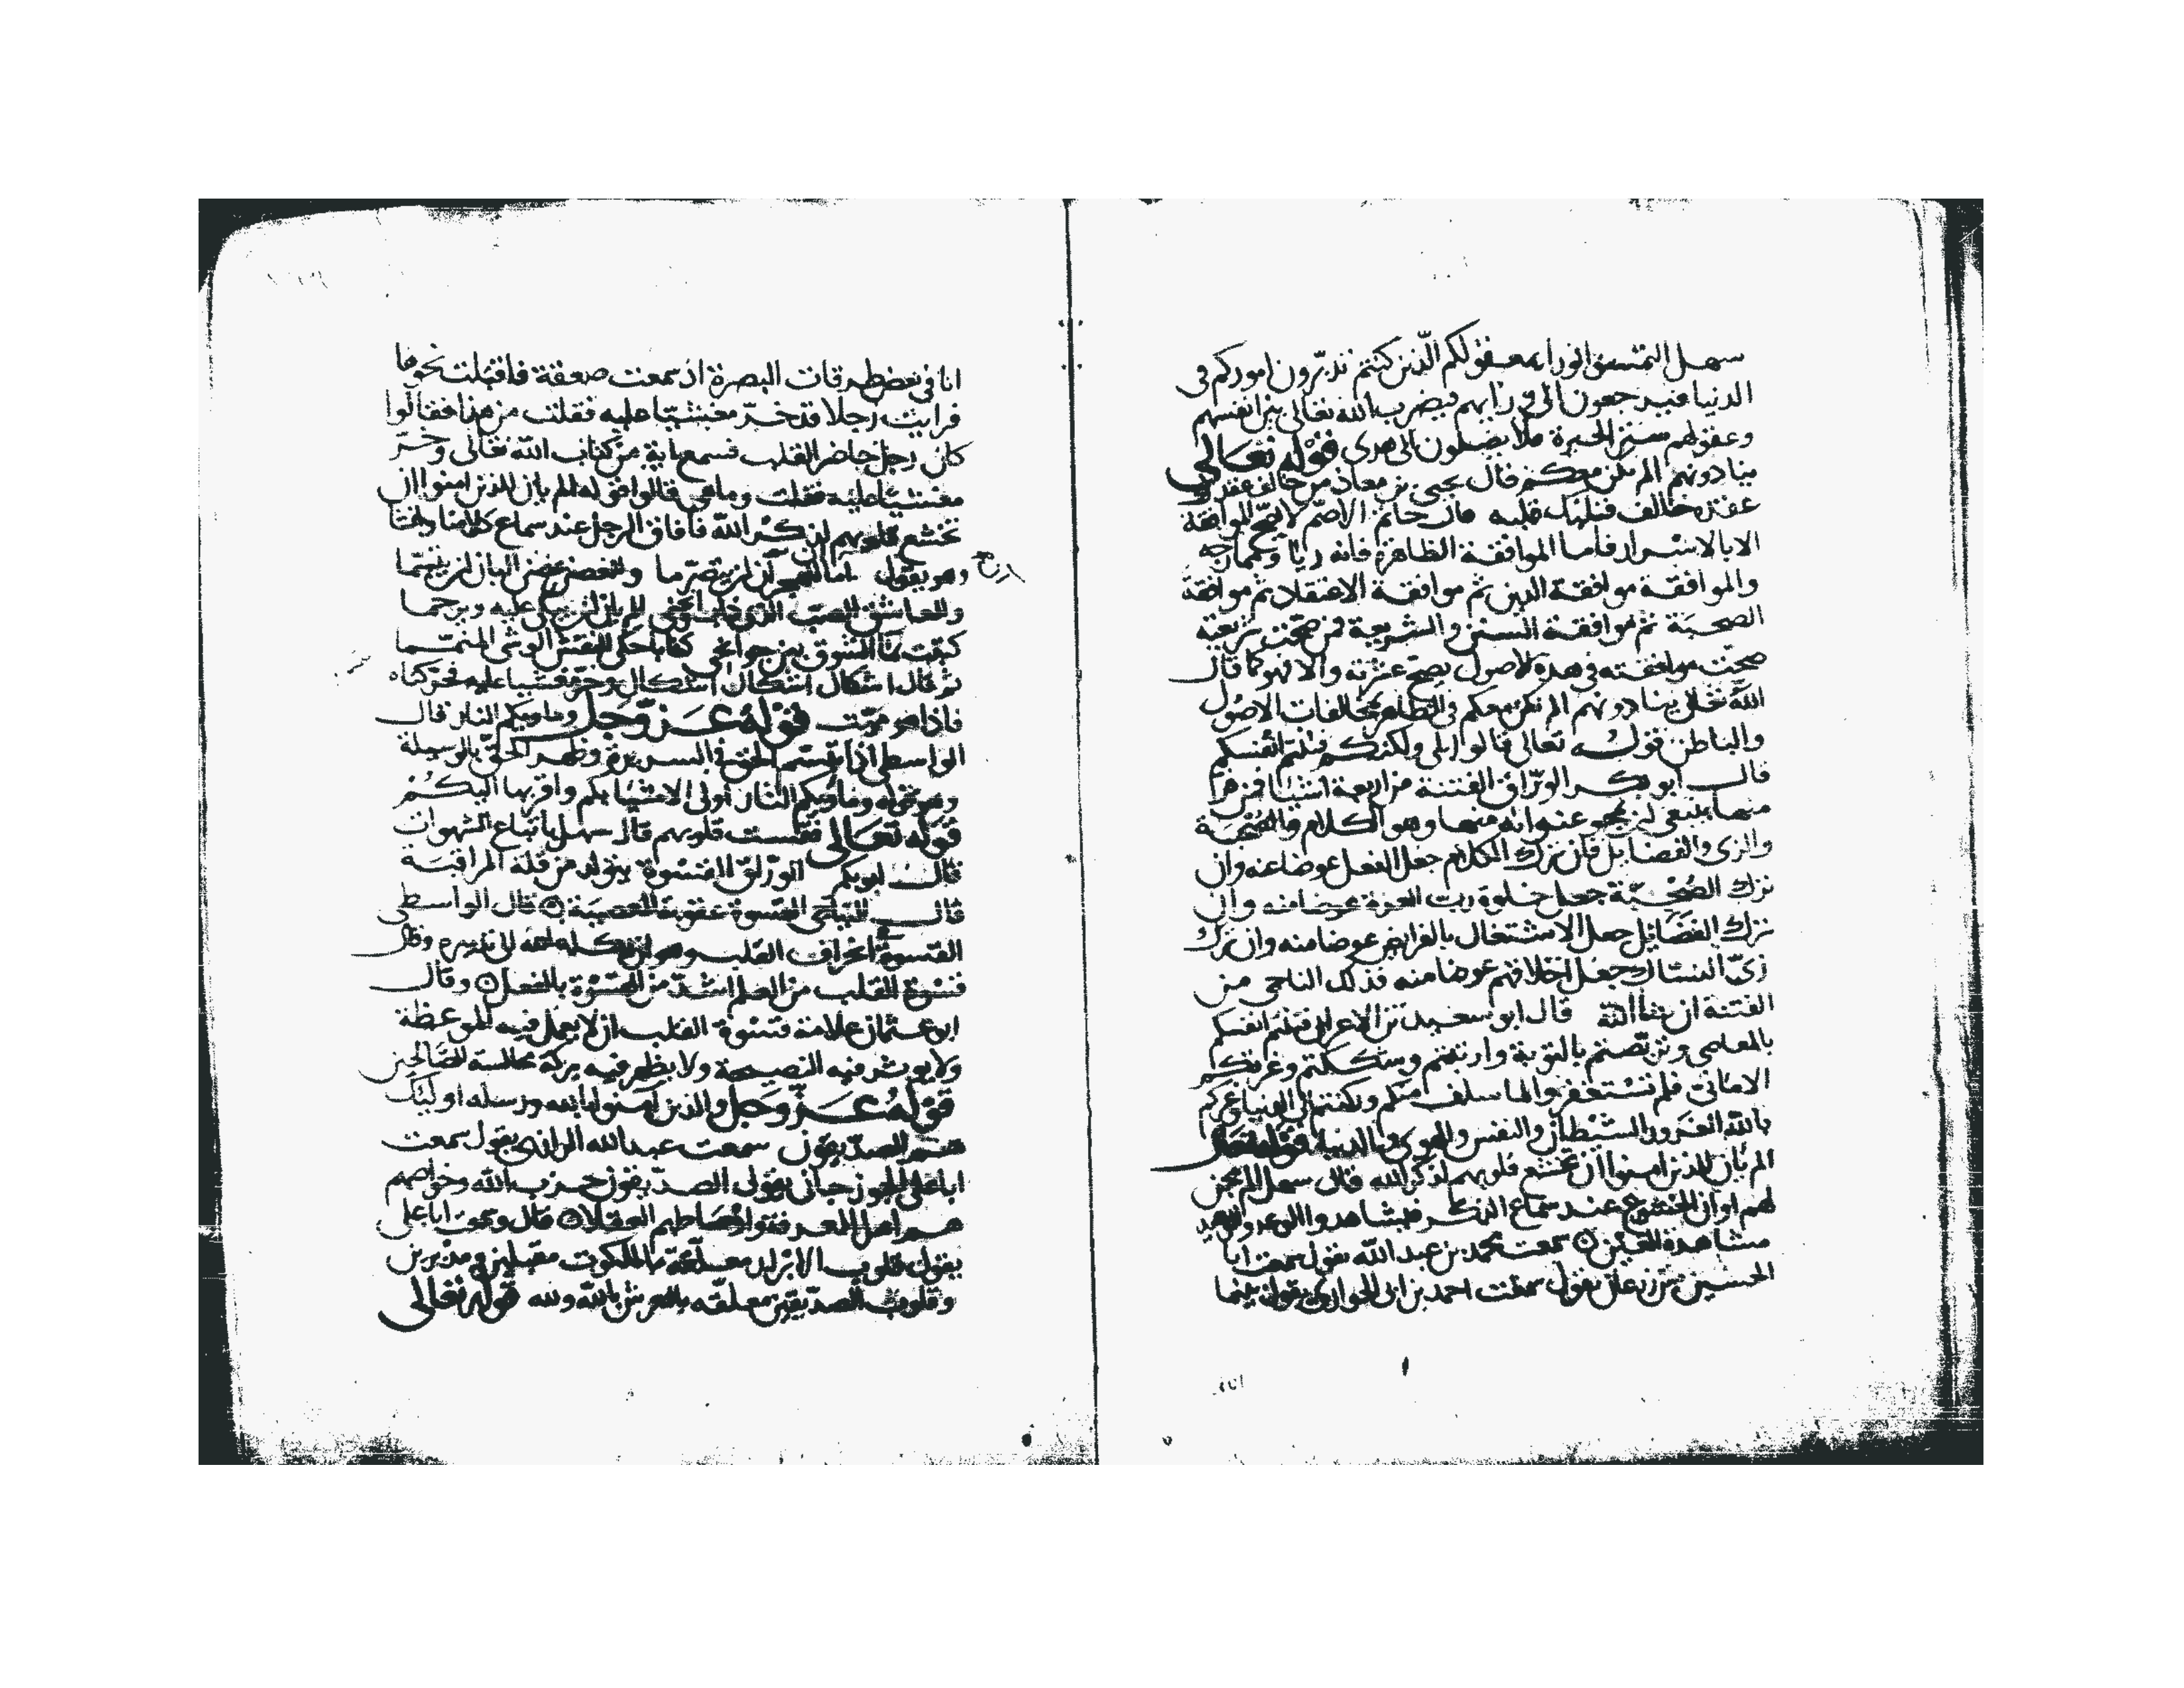 سهل التمسوا نورا بعقولكم الذين كنتم تدبرون اموركم فى
الدنيا فيرجعون الى رايهم فيضرب الله تعالى بين انفسهم
وعقولهم ستر الحيرة فلا يصلون الى هدى قوله تعالى
ينادونهم الم نكن معكم قال يحيى بن معاذ من خالف عقده
عقدة خالف قلبك قلبه قال حاتم الاصم لا تصح الموافقة
الا بالاسرار فاما الموافقة الظاهرة فانه ريا ومماراجه
والموافقة موافقة الدين ثم موافقة الاعتقاد ثم موافقة
الصحبة ثم موافقة السنن والشريعة فمن صحت شريعته
صحت موافقته فى هذه الاصول يصح عشرته والا فهو كما قال
الله تعالى ينادونهم الم نكن معكم فى الظاهر بمخالفات الاصول
والباطن قوله تعالى قالوا بلى ولكنكم فتنتم انفسكم
قال ابو بكر الوراق الفتنة من اربعة اشيا فمن مر
منها ينبغى ان ينجو عنه انه منها وهو الكلام والصحبة
والزى والفضايل فان ترك الكلام جعل الفعل عوضا عنه وان
ترك الصحبة جعل خلوة رب العزة عوضا منه وان
ترك الفضايل جعل الاشتغال بالفرايض عوضا منه وان ترك
زى النساك جعل اخلاقهم عوضا منه فذلك الناجى من
الفتنة ان شا الله قال ابو سعيد بن الاعرابى فتنتم انفسكم
بالمعاصى وتربصتم بالتوبة وارتبتم وشككتم وغرتكم
الامانى فلم تستغفروا لما سلف منكم وركنتم الى الدنيا وغركم
بالله الغرور الشيطان والنفس والهوى وبالدنيا قوله تعالى
الم يان للذين امنوا ان تخشع قلوبهم لذكر الله قال سهل الم يحن
لهم اوان الخشوع عند سماع الذكر فيشاهدوا الوعد والوعيد
مشاهدة الغيب سمعت محمد بن عبد الله يقول سمعت ابا
الحسين بن زرعان يقول سمعت احمد بن ابى الحوارى يقول بينما
انا فى بعض طرقات البصرة اذ سمعت صعقة فاقبلت نحوها
فرايت رجلا قد خر مغشيا عليه فقلت من هذا فقالوا
كان رجل حاضر القلب فسمع اية من كتاب الله تعالى وخر
مغشيا عليه فقلت وما هى قالوا قوله الم يان للذين امنوا ان
تخشع قلوبهم لذكر الله فافاق الرجل عند سماع كلامنا وانشا
وهو يقول اما ان للهجران ان يتصرما وللغصن غصن البان ان يتبسما
وللعاشق الصب الذى ذاب وانحنى الم يان ان يبكى عليه ويرحما
كتبت بما الشوق بين جوانحى كتابا حكى نقش الوشى المنمنما
ثم قال اشكال اشكال اشكال وخر مغشيا عليه فحركناه
فاذا هو ميت قوله عز وجل وماويكم النار قال
الواسطى اذا تبسم الحق فى السريرة وظهر الحق بالوسيلة
وهو قوله وماويكم النار اولى الاشيا بكم واقربها اليكم
قوله تعالى فقست قلوبهم قال سهل باتباع الشهوات
قال ابو بكر الوراق القسوة يتولد من قلة المراقبة
قال النباجى القسوة عقوبة المعصية قال الواسطى
القسوة انحراف القلب وهو ان يكله الله الى تدبيره وقال
قسوة القلب من العلم اشد من القسوة بالفعل وقال
ابو عثمان علامة قسوة القلب ان لا يعمل فيه الموعظة
ولا يوثر فيه النصيحة ولا يظهر فيه بركة مجالسة الصالحين
قوله عز وجل والذين امنوا بالله ورسله اوليك
هم الصديقون سمعت عبد الله الرازى يقول سمعت
ابا على الجوزجانى يقول الصديقون حزب الله وخواصهم
هم اهل المعرفة واوساطهم العقلا قال وسمعت ابا على
يقول قلوب الابرار معلقة بالملكوت مقبلين ومدبرين
وقلوب الصديقين معلقة بالعرش بالله ولله قوله تعالى